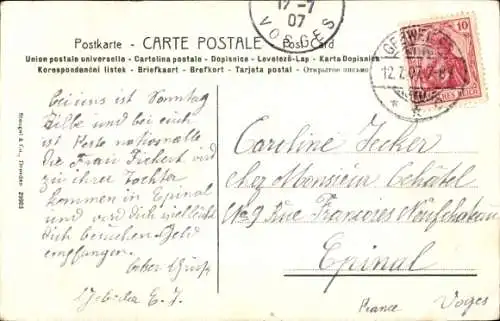 17-7
07
VOSGES
Postkarte - CARTE POSTALE - Post Card
Union postale universelle - Cartolina postale - Dopisnice - Levelező-Lap - Karta Dopisnica
Korespondenční lístek - Briefkaart - Brefkort - Tarjeta postal - Открытое письмо
10
12.7.07
REICH
Stengel & Co., Dresden 29983
bei uns ist Sonntag
Kilbe und bei euch
ist Feste nationalle
die Frau wird
zu ihrer Tochter
kommen in Epinal
und wird dich vielleicht
dich besuchen Geld
empfangen.
lieber Gruss
Gebrüder E. J.
Caroline Jecker
chez Monsieur Châtel
No 9 Rue François Neufchateau
Epinal
France Voges